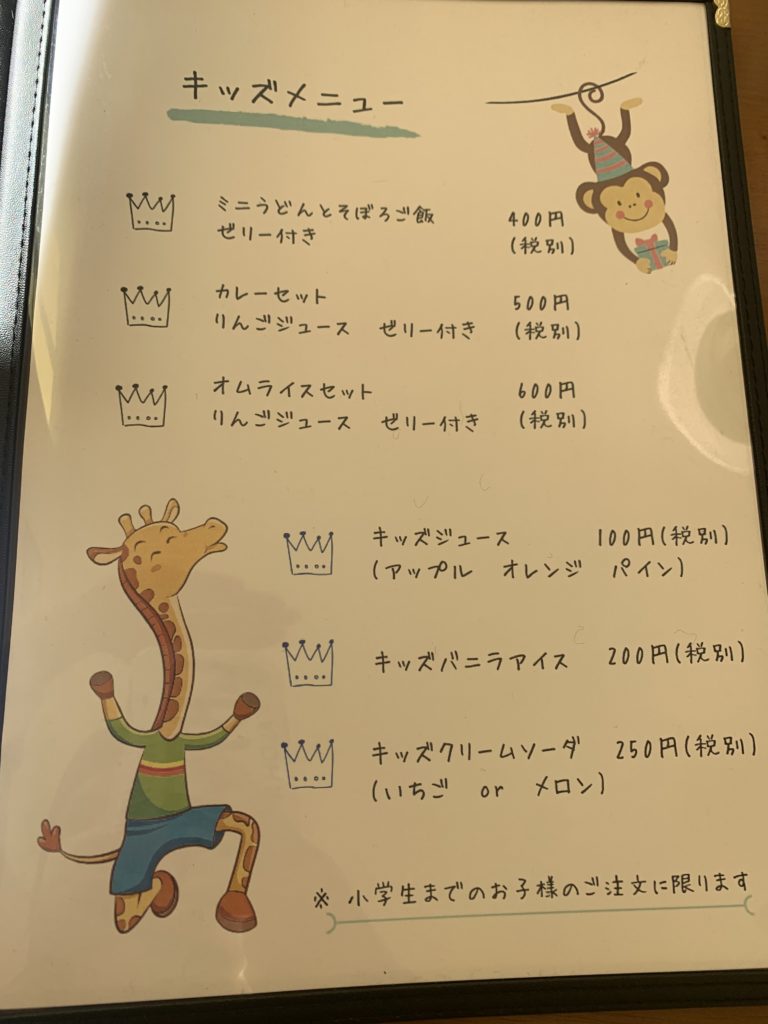 キッズメニュー
ミニうどんとそぼろご飯 400円
ゼリー付き (税別)
カレーセット 500円
りんごジュース ゼリー付き (税別)
オムライスセット 600円
りんごジュース ゼリー付き (税別)
キッズジュース 100円(税別)
(アップル オレンジ パイン)
キッズバニラアイス 200円(税別)
キッズクリームソーダ 250円(税別)
(いちご or メロン)
※ 小学生までのお子様のご注文に限ります